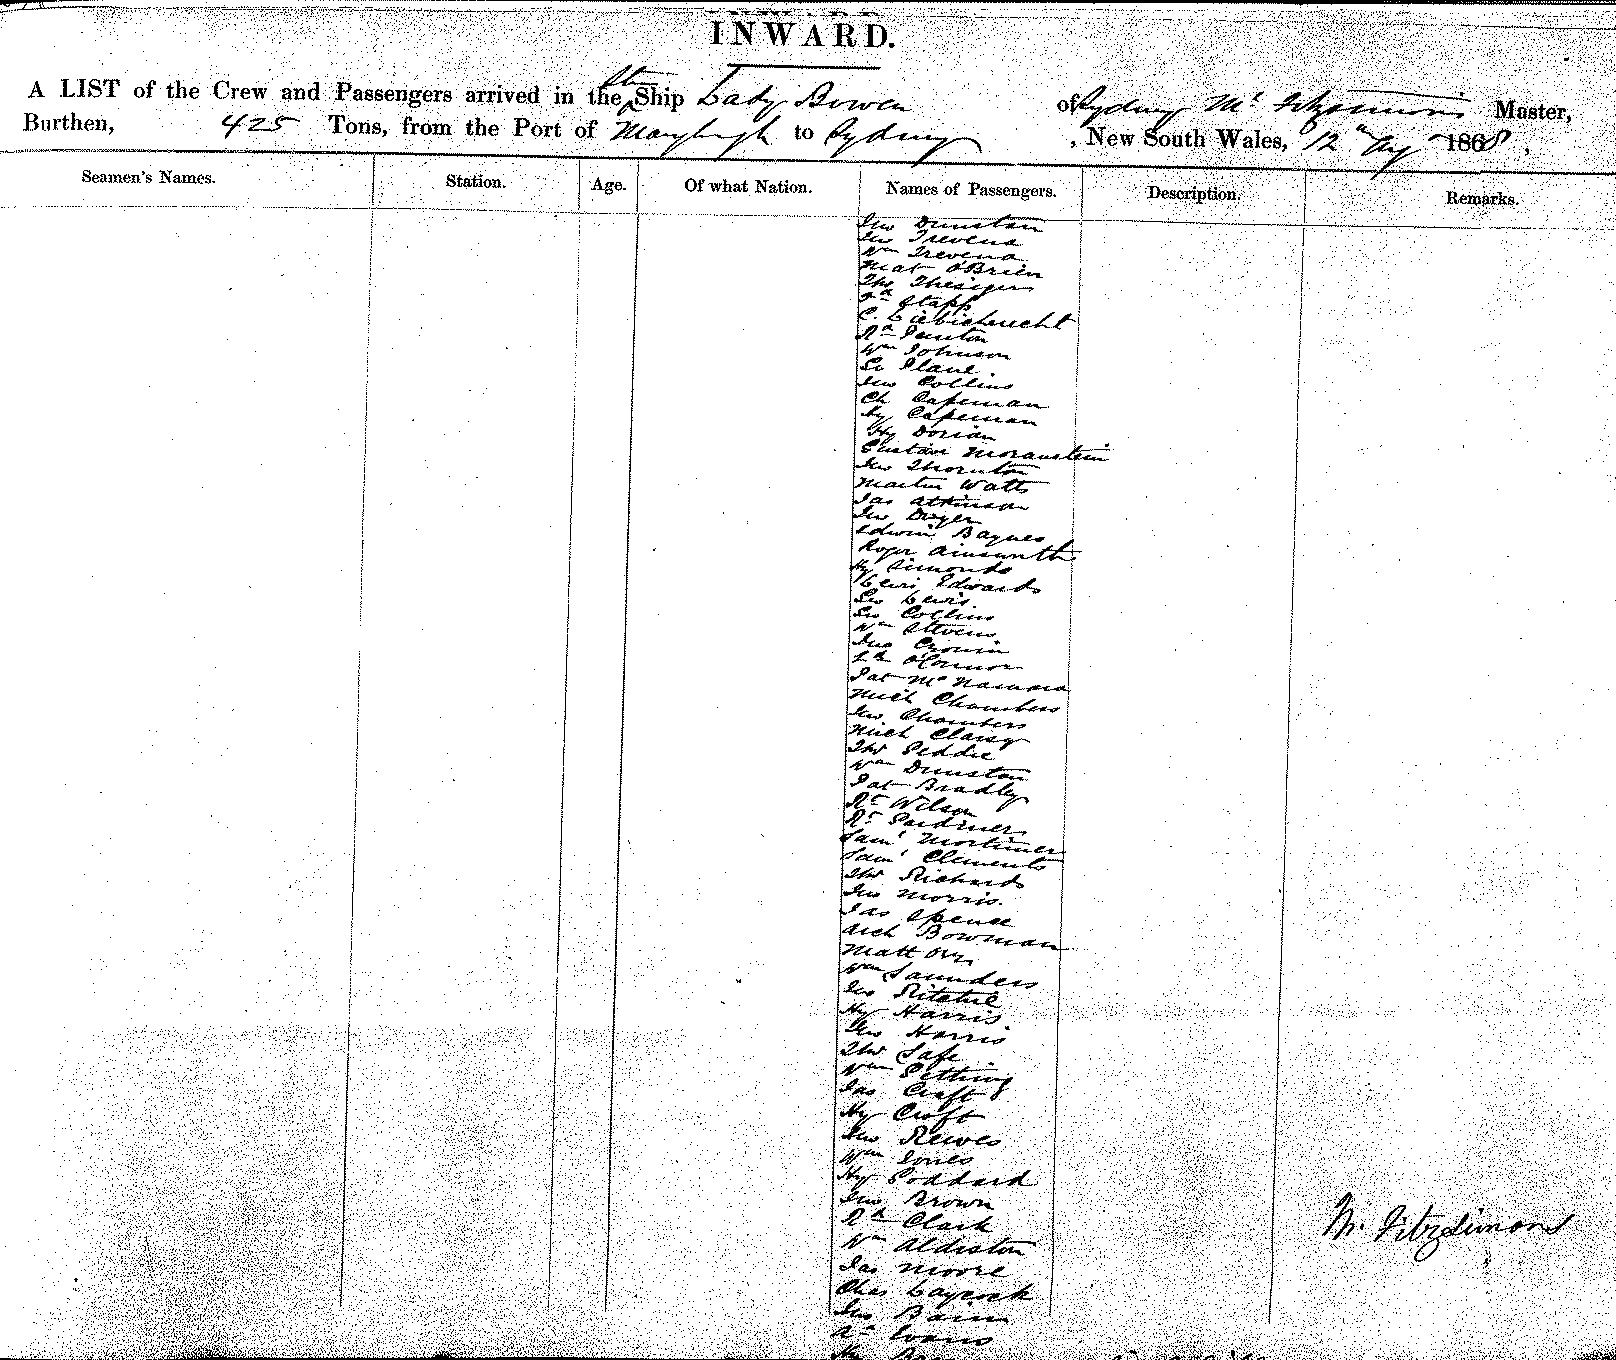 INWARD.
Str
A LIST of the Crew and Passengers arrived in the Ship Lady Bowen of Sydney Mr Fitzsimons Master,
Burthen, 425 Tons, from the Port of Marybrgh to Sydney, New South Wales, 12th Aug 1868.
Seamen's Names. Station. Age. Of what Nation. Names of Passengers. Description. Remarks.
Jno Dunstan
Jno Trevena
Wm Trevena
Mat O'Brien
Thos Thesiger
Stapp
C. Liebichnecht
Rd Panton
Wm Johnson
Geo Plane.
Jno Collins
Ch Capeman
Hy Capeman
Hy Dorian
Gustav Moraustein
Jno Thornton
Martin Watts
Jas Atkinson
Jno Dwyer
Edwin Baynes
Roger Ainsworth
Hy Simonds
Lewis Edwards
Geo Lewis
Geo Collins
Wm Stevens
Jno Cronin
O'Connor
Pat McNamara
Mich Chambers
Jno Chambers
Mich Clancy
Thos Peddie
Wm Dunstan
Pat Bradley
Rt Wilson
Rt Gardiner
Saml Mortimer
Saml Clements
Thos Richards
Jno Morris.
Jas Spence
Arch Bowman
Matt Orr
Wm Saunders
Jno Ritchie
Hy Harris
Geo Harris
Thos Safe
Wm Gitting
Jas Craft
Hy Croft
Jno Reeves
Wm Jones
Hy Goddard
Jno Brown
Rd Clark
Wm Aldiston
Jas Moore
Chas Laycock
Jno Bain
Evans
M. Fitzsimons